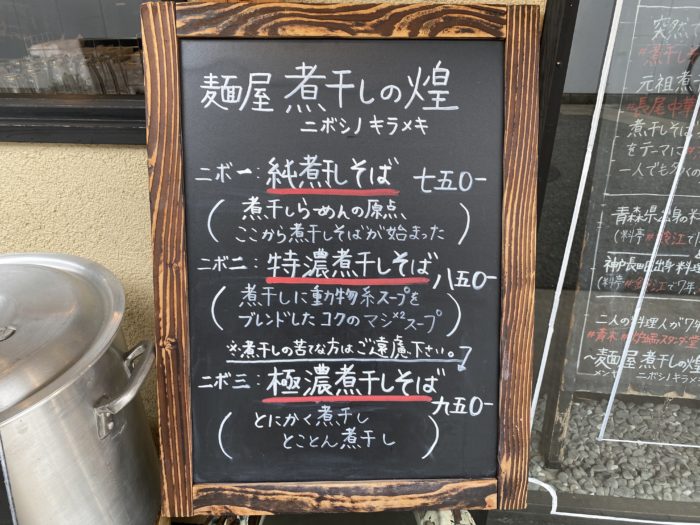 麺屋 煮干しの煌
ニボシノキラメキ
ニボ一:純煮干しそば 七五〇-
(煮干しらーめんの原点、
ここから煮干しそばが始まった)
ニボ二:特濃煮干しそば 八五〇-
(煮干しに動物系スープを
ブレンドしたコクのマシ×2スープ)
※煮干しの苦手な方はご遠慮下さい。
ニボ三:極濃煮干しそば 九五〇-
(とにかく煮干し
とことん煮干し)
突然で
#煮干し
元祖煮
#長屋中華
煮干しそば
をテーマに
一人でも多くの
青森県出身の
(料亭
神戸長田出身 料理
二人の料理人が
~麺屋 煮干しの煌
メンヤ ニボシノキラメ